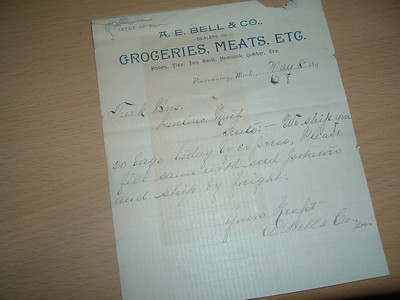 OFFICE OF
A. E. BELL & CO.,
DEALERS IN
GROCERIES, MEATS, ETC.
Posts, Ties, Tan Bark, Hemlock Lumber, Etc.
Mich., May 8 189
Turk Bros.
Mich
Gents:- We ship you
20 bags today by express, Please
fill same with seed potatoes
and ship by freight.
Yours Respt
A E Bell & Co